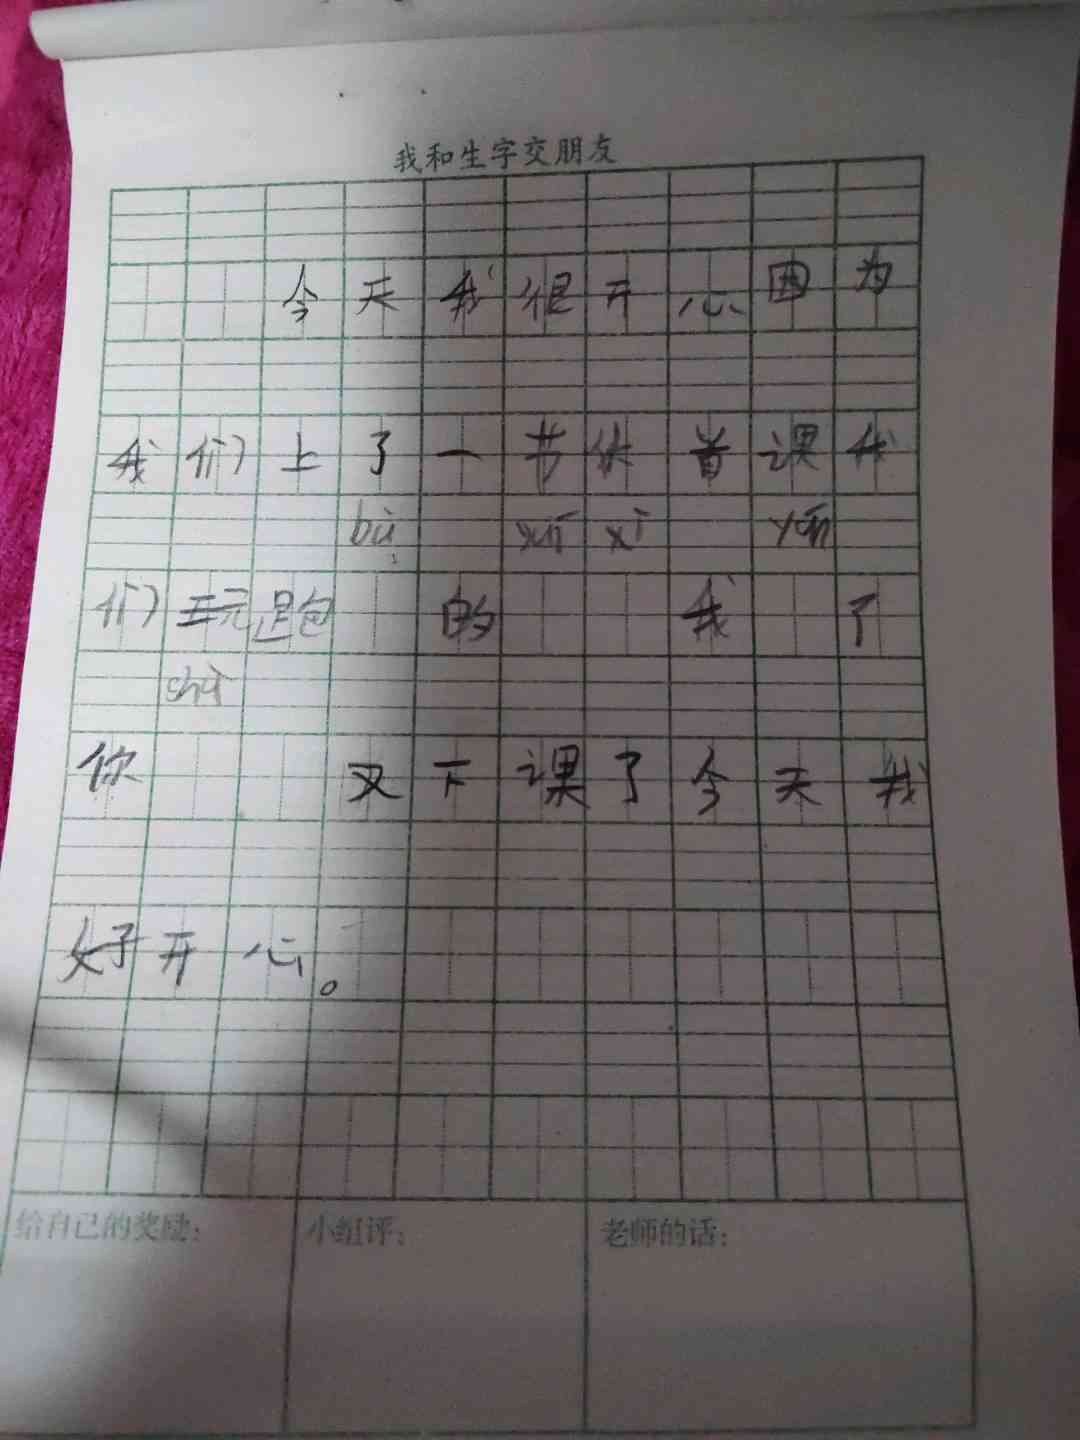 我和生字交朋友
今天我很开心因为
我们上了一节体育课我
bù xiū xī yūn
们玩足包 的 我 了
shū
你 又下课了今天我
好开心。
给自己的奖励：
小组评：
老师的话：